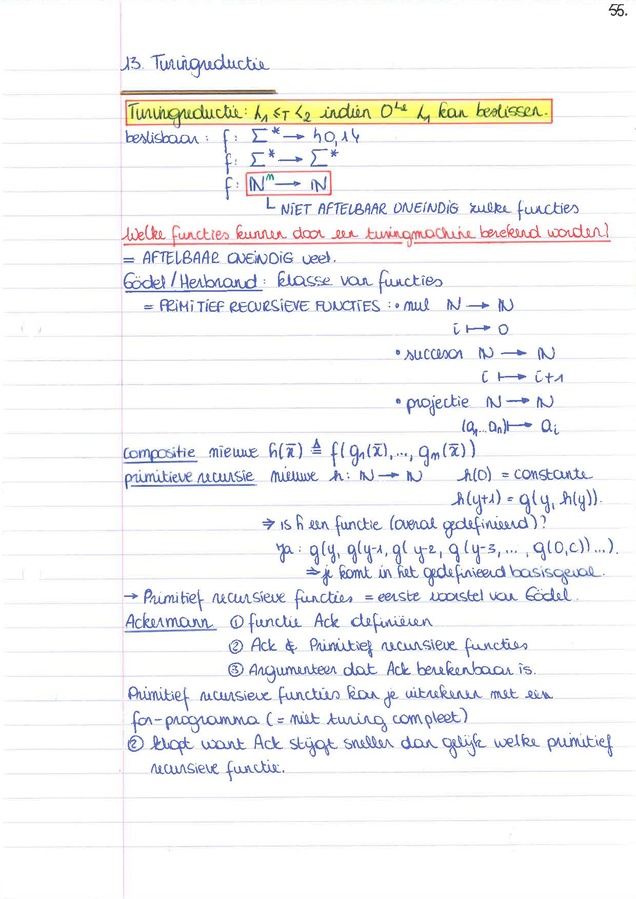 55.
13. Turingreductie
Turingreductie: L₁ ≤T L₂ indien O^L₂ L₁ kan beslissen.
beslisbaar: f: Σ* → {0,1}
f: Σ* → Σ*
f: ℕᵐ → ℕ
└ NIET AFTELBAAR ONEINDIG zulke functies
Welke functies kunnen door een turingmachine berekend worden?
= AFTELBAAR ONEINDIG veel.
Gödel/Herbrand: klasse van functies
= PRIMITIEF RECURSIEVE FUNCTIES: • nul ℕ → ℕ
i ↦ 0
• succesor ℕ → ℕ
i ↦ i+1
• projectie ℕ → ℕ
(a₁...aₙ) ↦ aᵢ
compositie nieuwe h(x̄) ≜ f(g₁(x̄),..., gₘ(x̄))
primitieve recursie nieuwe h: ℕ → ℕ h(0) = constante
h(y+1) = g(y, h(y)).
⇒ is h een functie (overal gedefinieerd)?
Ja: g(y, g(y-1, g(y-2, g(y-3, ..., g(0,c))...).
⇒ je komt in het gedefinieerd basisgeval.
→ Primitief recursieve functies = eerste voorstel van Gödel.
Ackermann ① functie Ack definiëren
② Ack ∉ Primitief recursieve functies
③ Argumenteer dat Ack berekenbaar is.
Primitief recursieve functies kan je uitrekenen met een
for-programma (= niet turing compleet)
② klopt want Ack stijgt sneller dan gelijk welke primitief
recursieve functie.